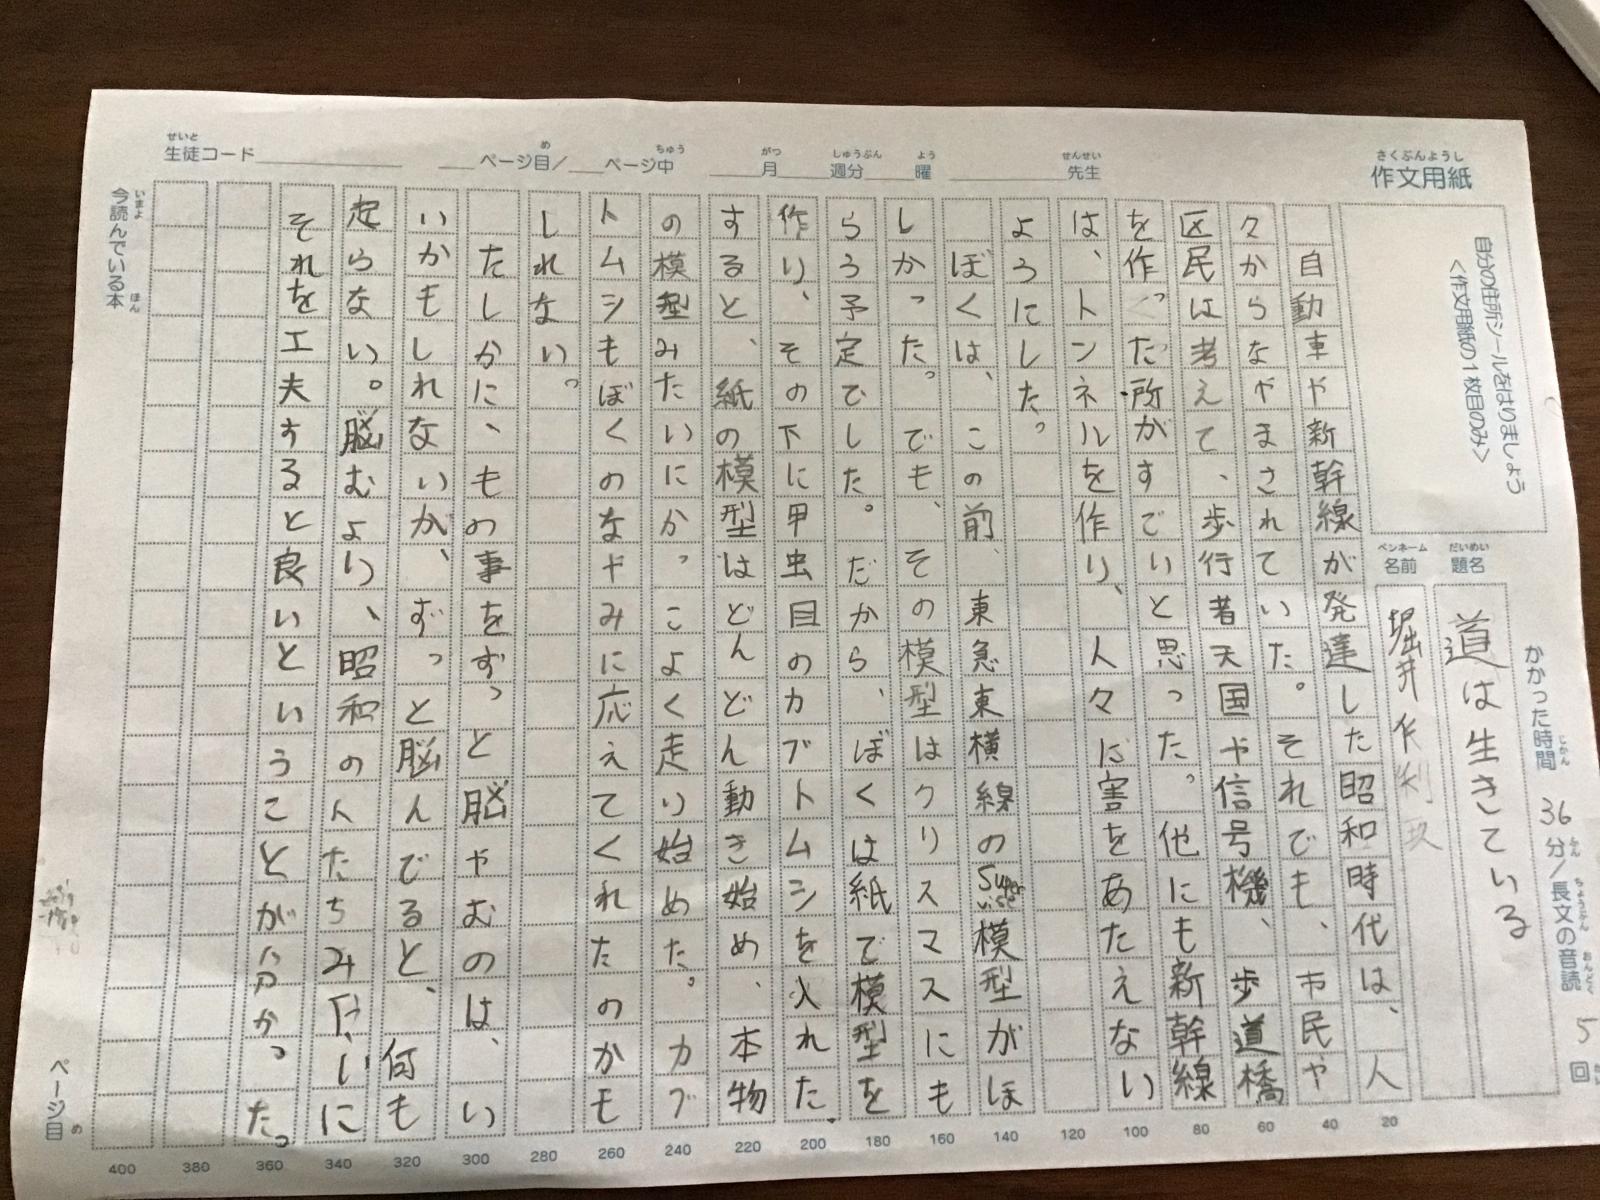 さくぶんようし
作文用紙
せんせい
先生
がつ しゅうぶん よう
月 週分 曜
め ちゅう
ページ目/ ページ中
せいと
生徒コード
自分の住所シールをはりましょう
<作文用紙の1枚目のみ>
かかった時間 36分/長文の音読 5回
じかん ふん ちょうぶん おんどく かい
だいめい
題名
道は生きている
ペンネーム
名前
堀井
自動車や新幹線が発達した昭和時代は、人
々からなやまされていた。それでも、市民や
区民は考えて、歩行者天国や信号機、歩道橋
を作った所がすでいと思った。他にも新幹線
は、トンネルを作り、人々に害をあたえない
ようにした。
ぼくは、この前、東急東横線のSuper模型がほ
しかった。でも、その模型はクリスマスにも
らう予定でした。だから、ぼくは紙で模型を
作り、その下に甲虫目のカブトムシを入れた。
すると、紙の模型はどんどん動き始め、本物
の模型みたいにかっこよく走り始めた。カブ
トムシもぼくのなやみに応えてくれたのかも
しれない。
たしかに、もの事をずっと脳やむのは、い
いかもしれないが、ずっと脳んでると、何も
起らない。脳むより、昭和の人たちみたいに
それを工夫すると良いということが分かった。
いまよ ほん
今読んでいる本
ページ目
め
20
40
60
80
100
120
140
160
180
200
220
240
260
280
300
320
340
360
380
400